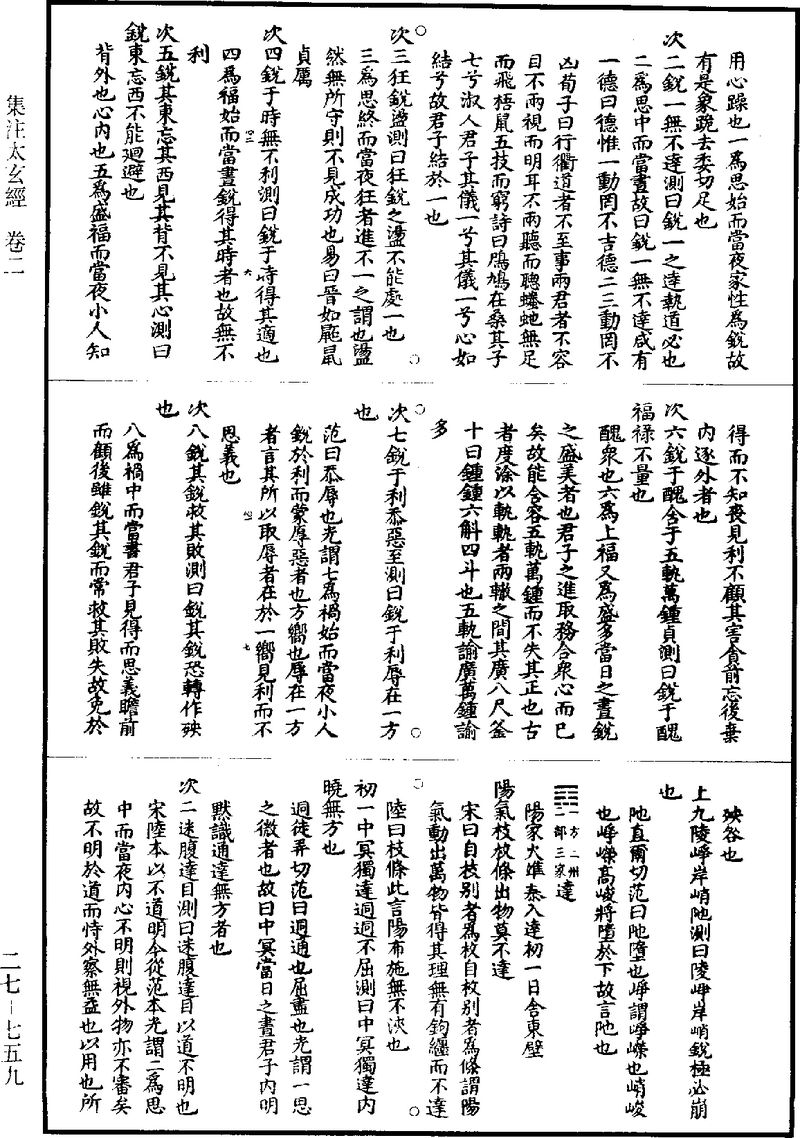 集注太玄經　卷二
用心躁也一為思始而當夜家性為銳故
有是象跪去委切足也
次二銳一無不達測曰銳一之達執道必也
二為思中而當晝故曰銳一無不達咸有
一德曰德惟一動罔不吉德二三動罔不
凶荀子曰行衢道者不至事兩君者不容
目不兩視而明耳不兩聽而聰螣虵無足
而飛梧鼠五技而窮詩曰鳲鳩在桑其子
七兮淑人君子其儀一兮其儀一兮心如
結兮故君子結於一也
次三狂銳盪測曰狂銳之盪不能處一也
三為思終而當夜狂者進不一之謂也盪
然無所守則不見成功也易曰晉如鼫鼠
貞厲
次四銳于時無不利測曰銳于時得其適也
四為福始而當晝銳得其時者也故無不
利
次五銳其東忘其西見其背不見其心測曰
銳東忘西不能迴避也
背外也心內也五為盛福而當夜小人知
得而不知喪見利不顧其害貪前忘後棄
內逐外者也
次六銳于醜含于五軌萬鍾貞測曰銳于醜
福祿不量也
醜衆也六為上福又為盛多當日之晝銳
之盛美者也君子之進取務合衆心而已
矣故能含容五軌萬鍾而不失其正也古
者度涂以軌軌者兩轍之間其廣八尺釜
十曰鍾鍾六斛四斗也五軌諭廣萬鍾諭
多
次七銳于利忝惡至測曰銳于利辱在一方
也
范曰忝辱也光謂七為禍始而當夜小人
銳於利而蒙辱惡者也方嚮也辱在一方
者言其所以取辱者在於一嚮見利而不
思義也
次八銳其銳救其敗測曰銳其銳恐轉作殃
也
八為禍中而當晝君子見得而思義瞻前
而顧後雖銳其銳而常救其敗失故免於
殃咎也
上九陵崢岸峭阤測曰陵崢岸峭銳極必崩
也
阤直爾切范曰阤墮也崢謂崢嶸也峭峻
也崢嶸高峻將墮於下故言阤也
一方二州二部三家達
陽家火準泰入達初一日舍東壁
陽氣枝枚條出物莫不達
宋曰自枝別者為枚自枚別者為條謂陽
氣動出萬物皆得其理無有鉤纏而不達
陸曰枝條此言陽布施無不浹也
初一中冥獨達迵迵不屈測曰中冥獨達內
曉無方也
迵徒弄切范曰迵通也屈盡也光謂一思
之微者也故曰中冥當日之晝君子內明
默識通達無方者也
次二迷腹達目測曰迷腹達目以道不明也
宋陸本以不道明今從范本光謂二為思
中而當夜內心不明則視外物亦不審矣
故不明於道而恃外察無益也以用也所
二七－七五九